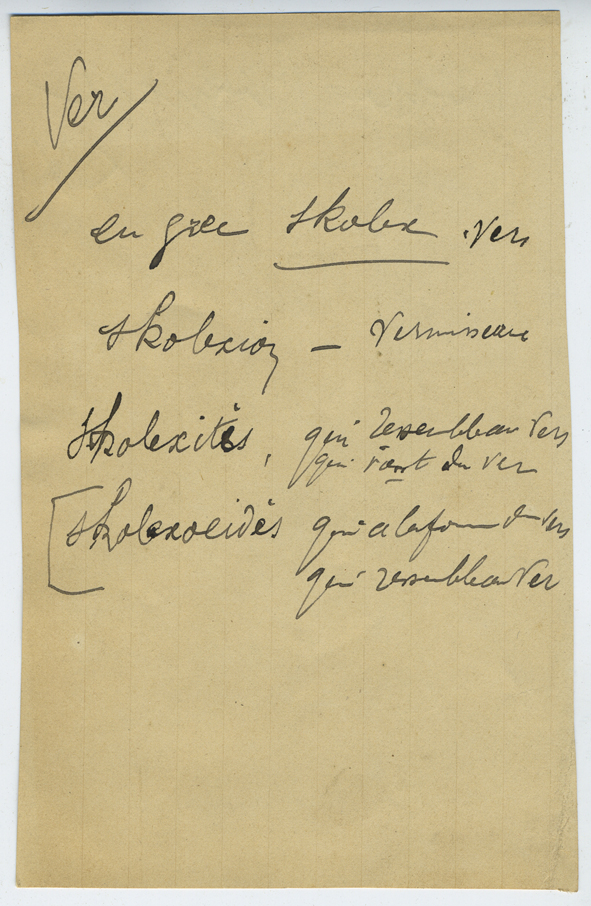 Ver
en grec skolex . Vers
skolexion — Vermisseau
Skolexitès, qui ressemble au Vers
qui du ver
[skolexoeidès qui a la forme du vers
qui ressemble au Ver